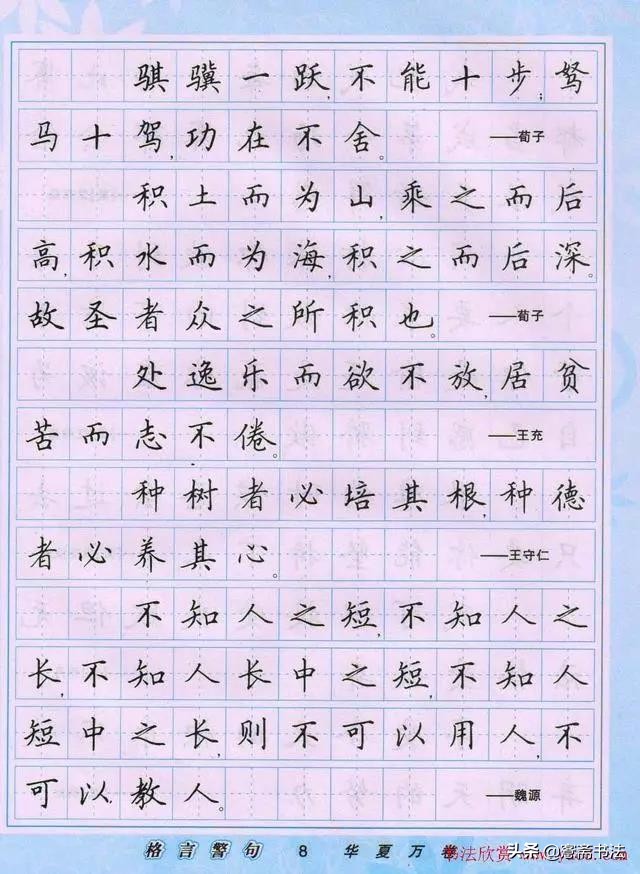 骐骥一跃,不能十步;驽
马十驾,功在不舍。 ——荀子
积土而为山,乘之而后
高,积水而为海,积之而后深。
故圣者众之所积也。 ——荀子
处逸乐而欲不放,居贫
苦而志不倦。 ——王充
种树者必培其根,种德
者必养其心。 ——王守仁
不知人之短,不知人之
长,不知人长中之短,不知人
短中之长,则不可以用人,不
可以教人。 ——魏源
格言警句 8 华夏万卷
书法欣赏
头条@寳斋书法